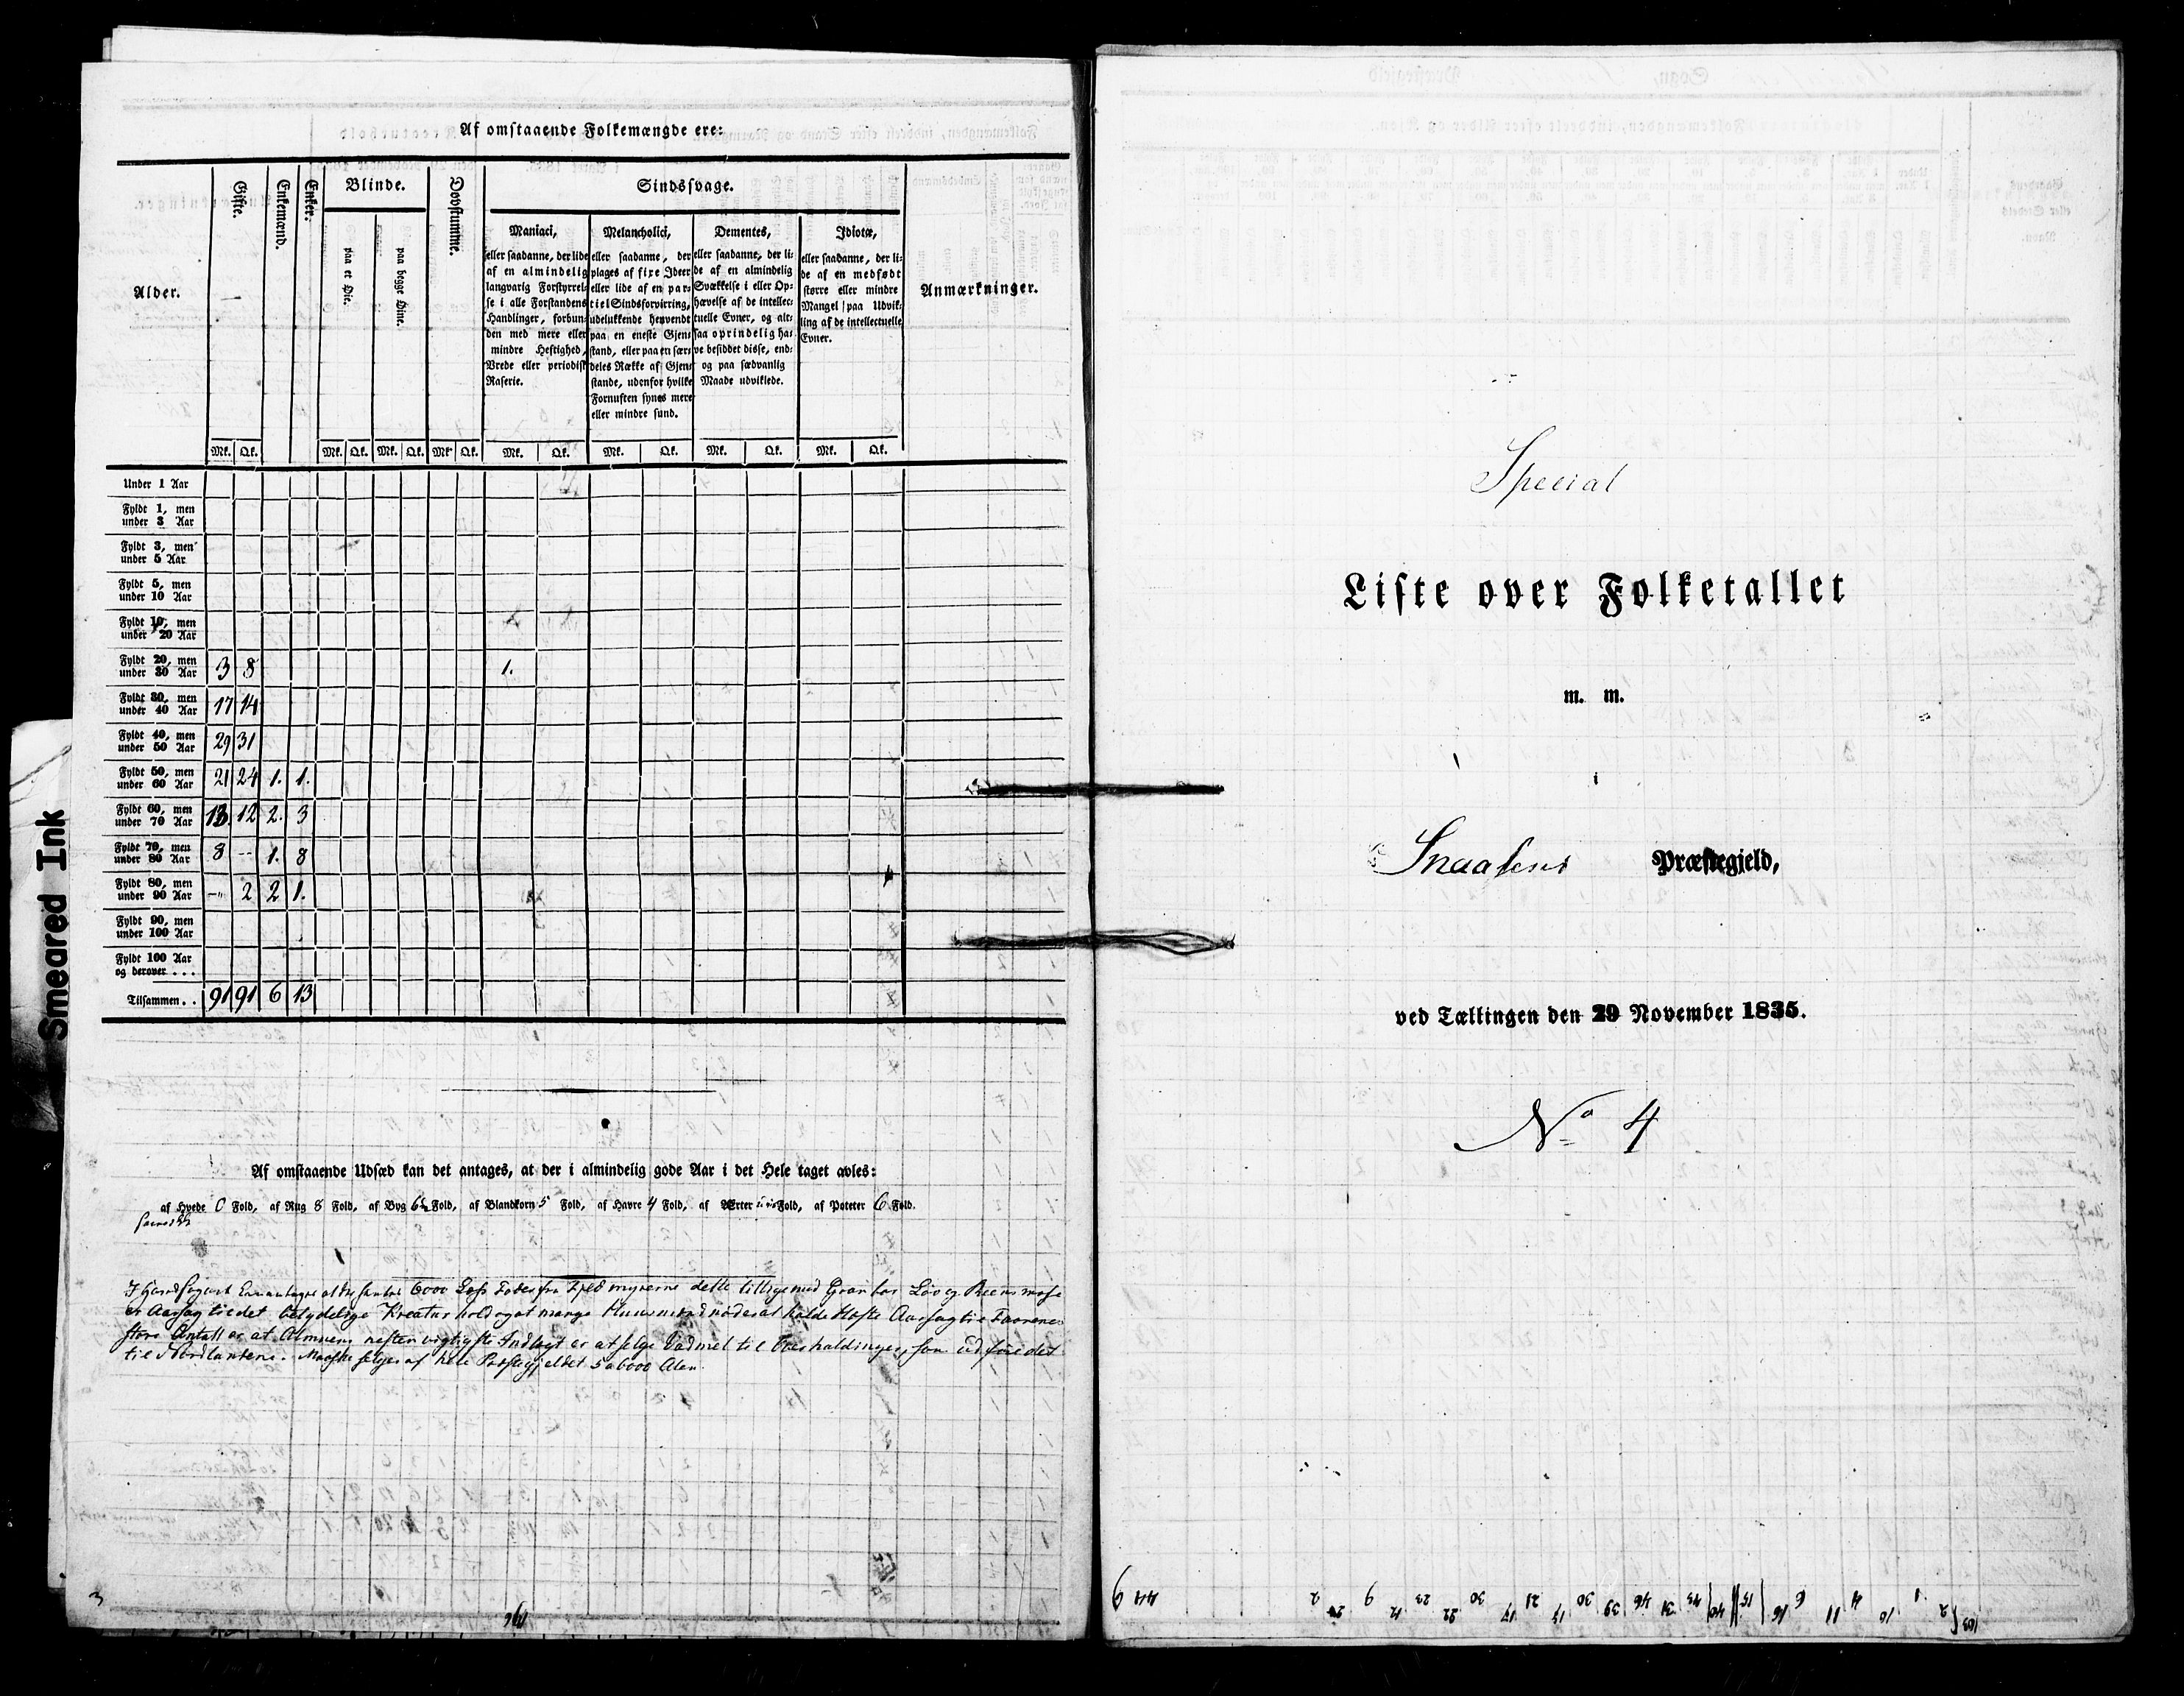 Af omstaaende Folkemængde ere:
Alder.
Gifte.
Enkemænd.
Enker.
Blinde.
paa et Øie.
paa begge Øine.
Dovstumme.
Sindssvage.
Maniaci,
eller saadanne, der lide
af en almindelig
langvarig Forstyrrel-
se i alle Forstandens
Handlinger, forbun-
den med mere eller
mindre Heftighed,
Vrede eller periodisk
Raserie.
Melancholici,
eller saadanne, der
plages af fixe Ideer
eller lide af en par-
tiel Sindsforvirring,
udelukkende henvende
paa en eneste Gjen-
stand, eller paa en sær-
deles Række af Gjen-
stande, udenfor hvilke
Fornuften synes mere
eller mindre sund.
Dementes,
eller saadanne, der li-
de af en almindelig
Svækkelse i eller Op-
hævelse af de intellec-
tuelle Evner, og alt-
saa oprindelig ha-
ve besiddet disse, end-
og paa sædvanlig
Maade udviklede.
Idiotæ,
eller saadanne, der li-
de af en medfødt
større eller mindre
Mangel paa Udvik-
ling af de intellectuelle
Evner.
Anmærkninger.
Mk. Qk. Mk. Qk. Mk. Qk. Mk Qk. Mk. Qk. Mk. Qk. Mk. Qk. Mk. Qk.
Under 1 Aar
Fyldt 1, men
under 3 Aar
Fyldt 3, men
under 5 Aar
Fyldt 5, men
under 10 Aar
Fyldt 10, men
under 20 Aar
Fyldt 20, men
under 30 Aar 3 8 1.
Fyldt 30, men
under 40 Aar 17 14
Fyldt 40, men
under 50 Aar 29 31
Fyldt 50, men
under 60 Aar 21 24 1. 1.
Fyldt 60, men
under 70 Aar 13. 12 2. 3
Fyldt 70, men
under 80 Aar 8 -- 1. 8
Fyldt 80, men
under 90 Aar -- 2 2 1.
Fyldt 90, men
under 100 Aar
Fyldt 100 Aar
og derover . . .
Tilsammen . . 91 91 6 13
Af omstaaende Udsæd kan det antages, at der i almindelig gode Aar i det Hele taget avles:
af Hvede 0 Fold, af Rug 8 Fold, af Byg 6½ Fold, af Blandkorn 5 Fold, af Havre 4 Fold, af Ærter Fold, af Poteter 6 Fold.
6000 Læs Foder fra Fjeldmyrerne dette tilligemed Granbar Løv og Reensmose
er Aarsag til det betydelige Kreatur hold og at mange Huusmænd node at holde Heste Aarsag til Faarenes
store Antall er at Almuens næsten vigtigste Indtægt er at selge Vadmel til som udføre det
til Nordlandene. Maaske selges af hele Præstegjeldet 5 a 6000 Alen
Special
Liste over Folketallet
m. m.
i
Snaasens Præstegjeld,
ved Tællingen den 29 November 1835.
No 4
Smeared Ink